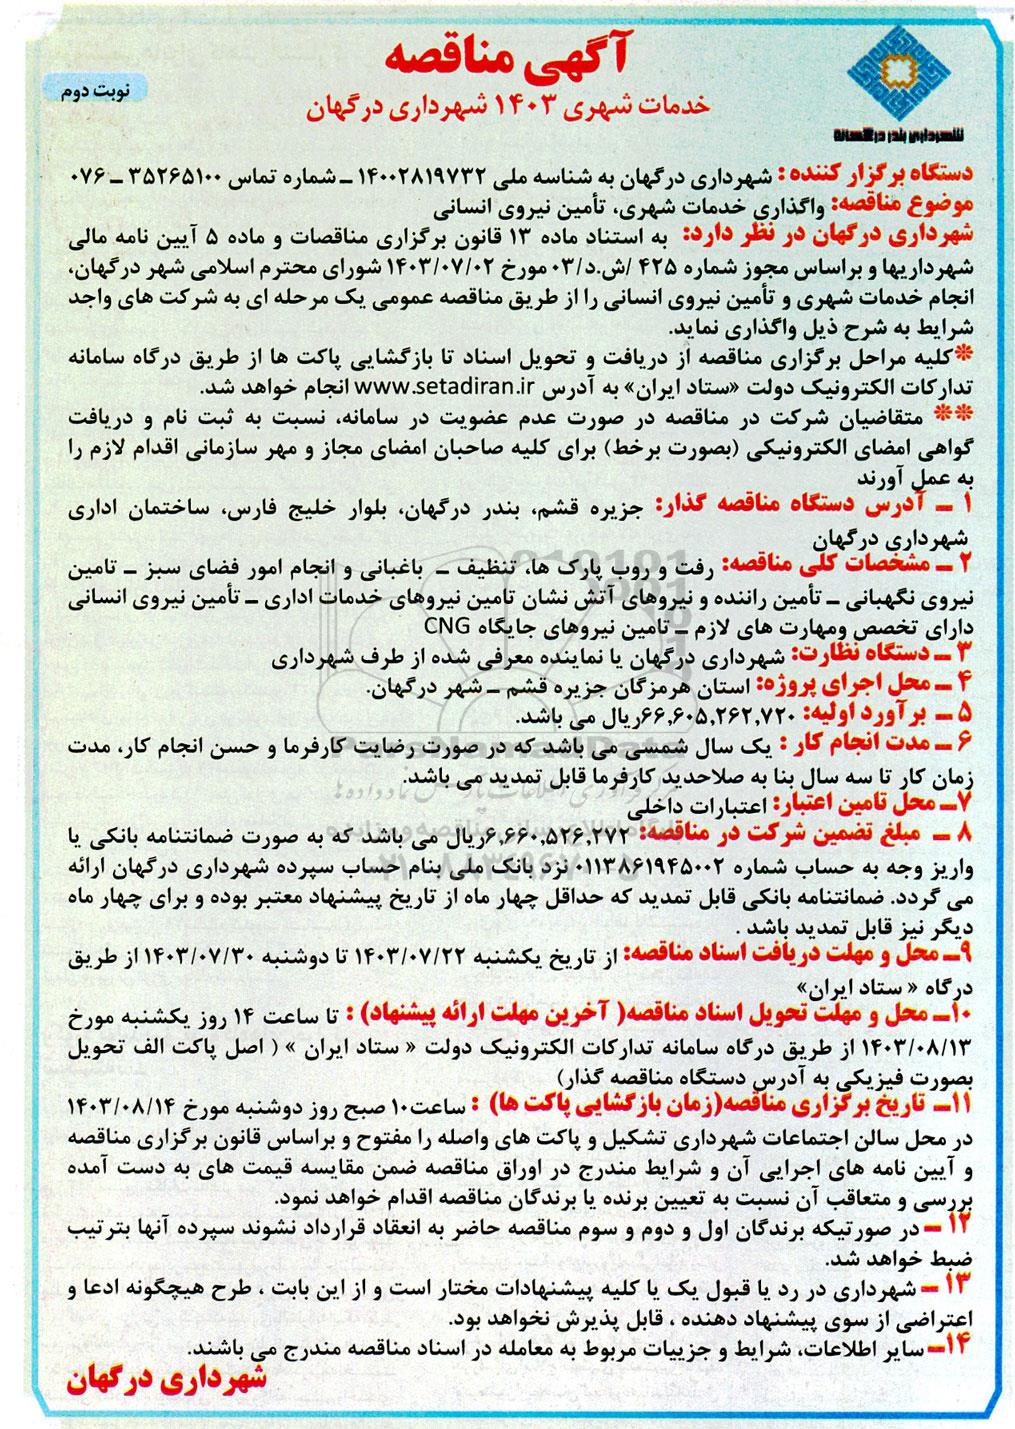 آگهی مناقصه
خدمات شهری ۱۴۰۳ شهرداری درگهان
نوبت دوم
شهرداری بندر درگهان
دستگاه برگزار کننده : شهرداری درگهان به شناسه ملی ۱۴۰۰۲۸۱۹۷۳۲ ـ شماره تماس ۳۵۲۶۵۱۰۰ ـ ۰۷۶
موضوع مناقصه: واگذاری خدمات شهری، تأمین نیروی انسانی
شهرداری درگهان در نظر دارد: به استناد ماده ۱۳ قانون برگزاری مناقصات و ماده ۵ آیین نامه مالی
شهرداریها و براساس مجوز شماره ۴۲۵ /ش.د/۰۳ مورخ ۱۴۰۳/۰۷/۰۲ شورای محترم اسلامی شهر درگهان،
انجام خدمات شهری و تأمین نیروی انسانی را از طریق مناقصه عمومی یک مرحله ای به شرکت های واجد
شرایط به شرح ذیل واگذاری نماید.
*کلیه مراحل برگزاری مناقصه از دریافت و تحویل اسناد تا بازگشایی پاکت ها از طریق درگاه سامانه
تدارکات الکترونیک دولت «ستاد ایران» به آدرس www.setadiran.ir انجام خواهد شد.
** متقاضیان شرکت در مناقصه در صورت عدم عضویت در سامانه، نسبت به ثبت نام و دریافت
گواهی امضای الکترونیکی (بصورت برخط) برای کلیه صاحبان امضای مجاز و مهر سازمانی اقدام لازم را
به عمل آورند
۱ ـ آدرس دستگاه مناقصه گذار: جزیره قشم، بندر درگهان، بلوار خلیج فارس، ساختمان اداری
شهرداری درگهان
۲ ـ مشخصات کلی مناقصه: رفت و روب پارک ها، تنظیف ـ باغبانی و انجام امور فضای سبز ـ تامین
نیروی نگهبانی ـ تأمین راننده و نیروهای آتش نشان تامین نیروهای خدمات اداری ـ تأمین نیروی انسانی
دارای تخصص ومهارت های لازم ـ تامین نیروهای جایگاه CNG
۳ ـ دستگاه نظارت: شهرداری درگهان یا نماینده معرفی شده از طرف شهرداری
۴ ـ محل اجرای پروژه: استان هرمزگان جزیره قشم ـ شهر درگهان.
۵ ـ برآورد اولیه: ۶۶,۶۰۵,۲۶۲,۷۲۰ریال می باشد.
۶ ـ مدت انجام کار : یک سال شمسی می باشد که در صورت رضایت کارفرما و حسن انجام کار، مدت
زمان کار تا سه سال بنا به صلاحدید کارفرما قابل تمدید می باشد.
۷ـ محل تامین اعتبار: اعتبارات داخلی
۸ ـ مبلغ تضمین شرکت در مناقصه: ۶,۶۶۰,۵۲۶,۲۷۲ریال می باشد که به صورت ضمانتنامه بانکی یا
واریز وجه به حساب شماره ۰۱۱۳۸۶۱۹۴۵۰۰۲ نزد بانک ملی بنام حساب سپرده شهرداری درگهان ارائه
می گردد. ضمانتنامه بانکی قابل تمدید که حداقل چهار ماه از تاریخ پیشنهاد معتبر بوده و برای چهار ماه
دیگر نیز قابل تمدید باشد .
۹ـ محل و مهلت دریافت اسناد مناقصه: از تاریخ یکشنبه ۱۴۰۳/۰۷/۲۲ تا دوشنبه ۱۴۰۳/۰۷/۳۰ از طریق
درگاه « ستاد ایران»
۱۰ـ محل و مهلت تحویل اسناد مناقصه( آخرین مهلت ارائه پیشنهاد) : تا ساعت ۱۴ روز یکشنبه مورخ
۱۴۰۳/۰۸/۱۳ از طریق درگاه سامانه تدارکات الکترونیک دولت « ستاد ایران » ( اصل پاکت الف تحویل
بصورت فیزیکی به آدرس دستگاه مناقصه گذار)
۱۱ـ تاریخ برگزاری مناقصه(زمان بازگشایی پاکت ها) : ساعت۱۰ صبح روز دوشنبه مورخ ۱۴۰۳/۰۸/۱۴
در محل سالن اجتماعات شهرداری تشکیل و پاکت های واصله را مفتوح و براساس قانون برگزاری مناقصه
و آیین نامه های اجرایی آن و شرایط مندرج در اوراق مناقصه ضمن مقایسه قیمت های به دست آمده
بررسی و متعاقب آن نسبت به تعیین برنده یا برندگان مناقصه اقدام خواهد نمود.
۱۲ ـ در صورتیکه برندگان اول و دوم و سوم مناقصه حاضر به انعقاد قرارداد نشوند سپرده آنها بترتیب
ضبط خواهد شد.
۱۳ ـ شهرداری در رد یا قبول یک یا کلیه پیشنهادات مختار است و از این بابت ، طرح هیچگونه ادعا و
اعتراضی از سوی پیشنهاد دهنده ، قابل پذیرش نخواهد بود.
۱۴ـ سایر اطلاعات، شرایط و جزییات مربوط به معامله در اسناد مناقصه مندرج می باشند.
شهرداری درگهان